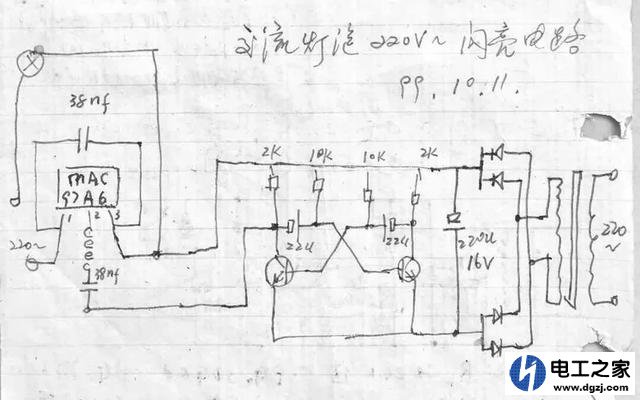 交流灯泡220V~闪亮电路
99.10.11.
38nf
MAC
97A6
1 2 3
220~
38nf
2K 10K 10K 2K
22u 22u
220u
16V
220
~
电工之家
www.dgzj.com